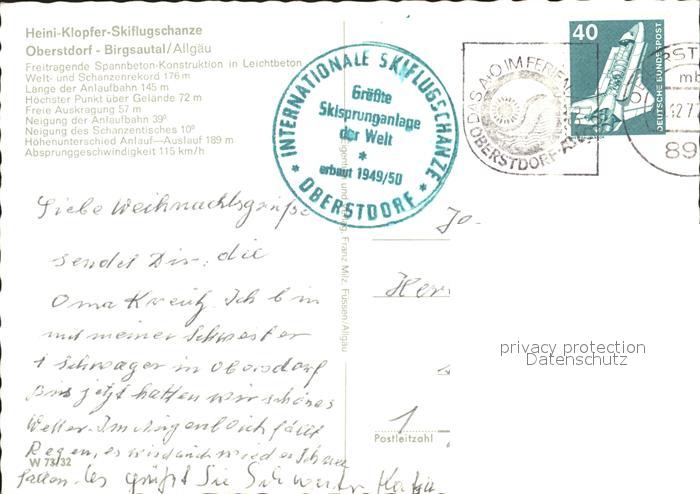 Heini-Klopfer-Skiflugschanze
Oberstdorf - Birgsautal/Allgäu
Freitragende Spannbeton-Konstruktion in Leichtbeton
Welt- und Schanzenrekord 176 m
Länge der Anlaufbahn 145 m
Höchster Punkt über Gelände 72 m
Freie Auskragung 57 m
Neigung der Anlaufbahn 39°
Neigung des Schanzentisches 10°
Höhenunterschied Anlauf—Auslauf 189 m
Absprunggeschwindigkeit 115 km/h
INTERNATIONALE SKIFLUGSCHANZE
Größte
Skisprunganlage
der Welt
*
erbaut 1949/50
* OBERSTDORF *
DAS A+O IM FERIEN
OBERSTDORF
40
DEUTSCHE BUNDESPOST
89
Franz Milz, Füssen Allgäu
Liebe Weihnachtsgrüße
sendet Dir, die
Oma Kreutz. Ich bin
mit meiner Schwester
+ Schwager in Obersdorf
Bis jetzt hatten wir schönes
Wetter. Im Augenblick fällt
Regen, es wird auch wieder Schnee
fallen. Es grüßt Sie Schwester
Jo-
Herr
1
Postleitzahl
W 73/32
privacy protection
Datenschutz